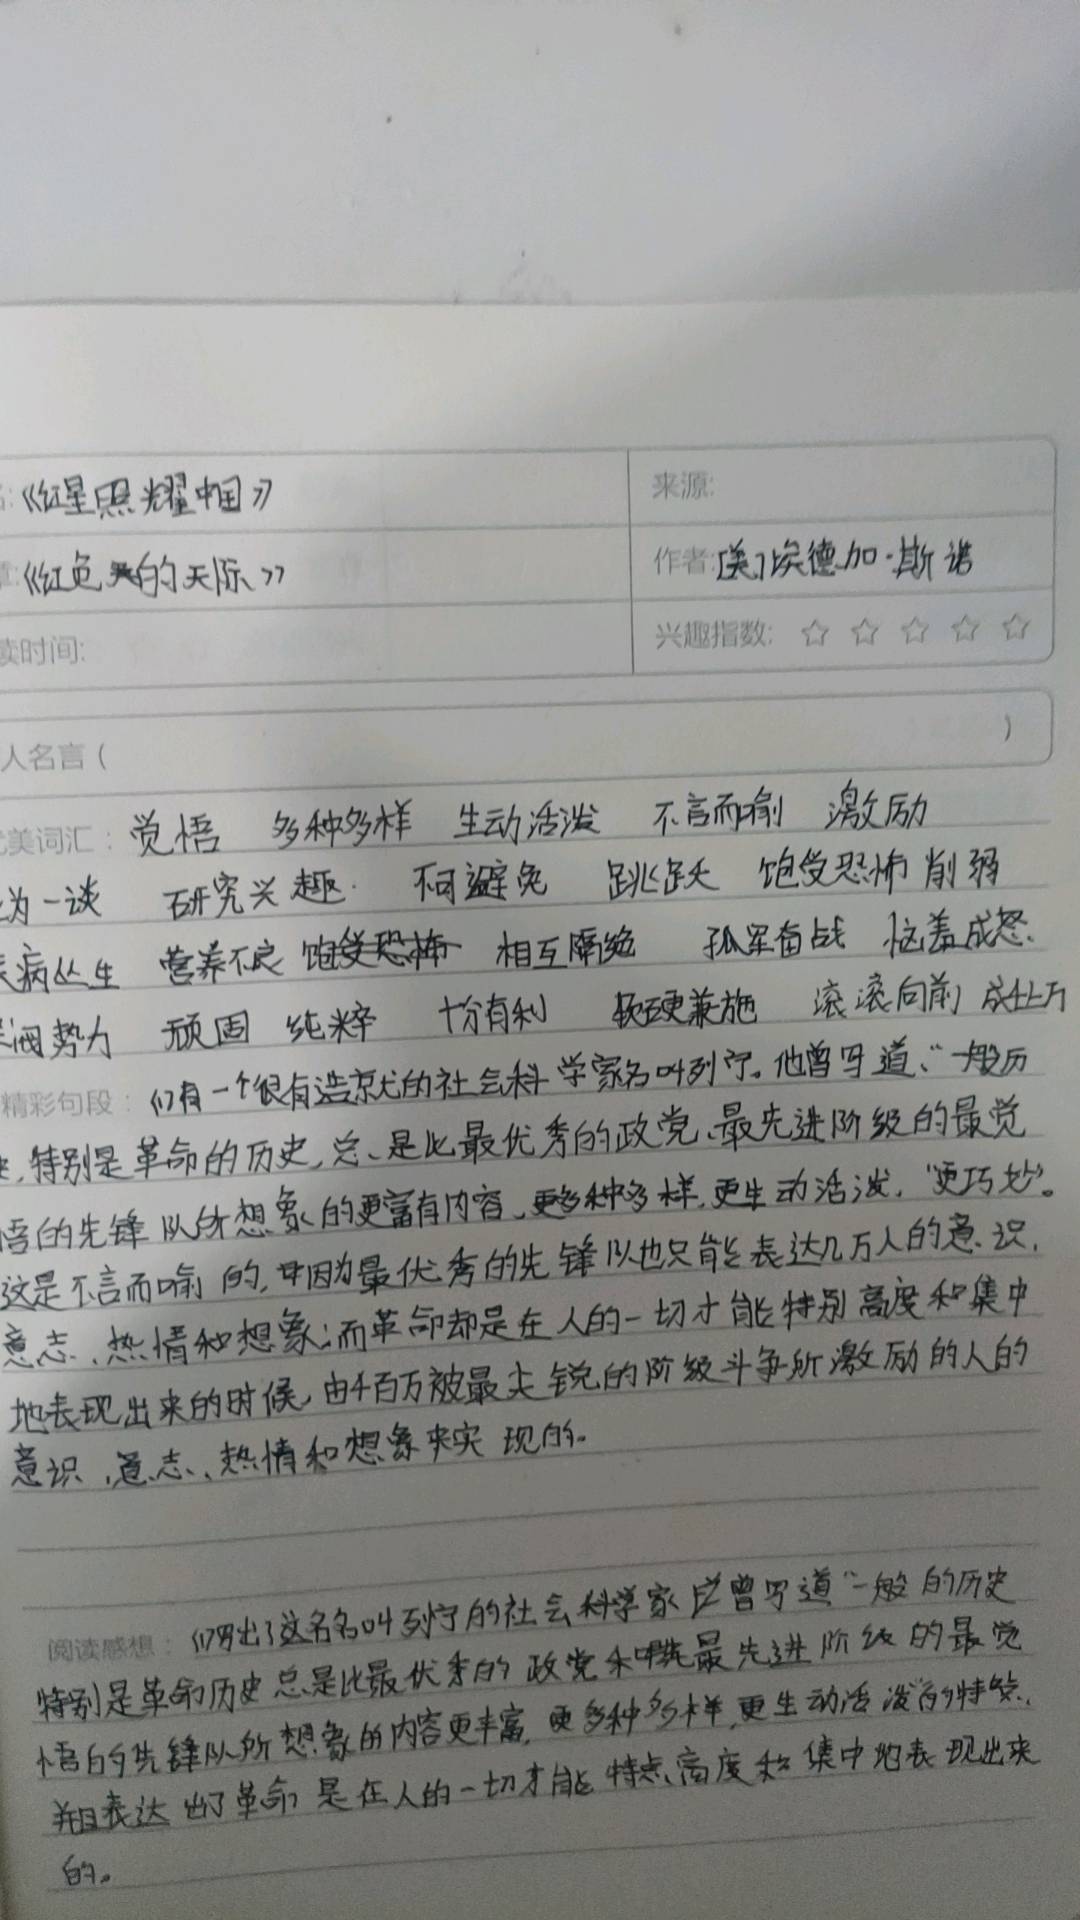 《红星照耀中国》 来源:
《红色的天际》 作者:[美]埃德加·斯诺
读时间: 兴趣指数: ☆ ☆ ☆ ☆ ☆
人名言( )
美词汇: 觉悟 多种多样 生动活泼 不言而喻 激励
为一谈 研究兴趣 不可避免 跳跃 饱受恐怖 削弱
病丛生 营养不良 饱受恐怖 相互隔绝 孤军奋战 恼羞成怒
阀势力 顽固 纯粹 十分有利 软硬兼施 滚滚向前 成千上万
精彩句段: (1)有一个很有造就的社会科学家名叫列宁。他曾写道、“一般历
,特别是革命的历史,总、是比最优秀的政党、最先进阶级的最觉
悟的先锋队所想象的更富有内容、更多种多样,更生动活泼,“更巧妙”。
这是不言而喻的,因为最优秀的先锋队也只能表达几万人的意识,
意志、热情和想象;而革命却是在人的一切才能特别高度和集中
地表现出来的时候,由千百万被最尖锐的阶级斗争所激励的人的
意识,意志、热情和想象来实现的。
阅读感想: (1)写出了这名名叫列宁的社会科学家曾写道“一般的历史
特别是革命历史总是比最优秀的政党和最先进阶级的最觉
悟的先锋队所想象的内容更丰富,更多种多样,更生动活泼”的特点,
并且表达出了革命是在人的一切才能特点高度和集中地表现出来
的。